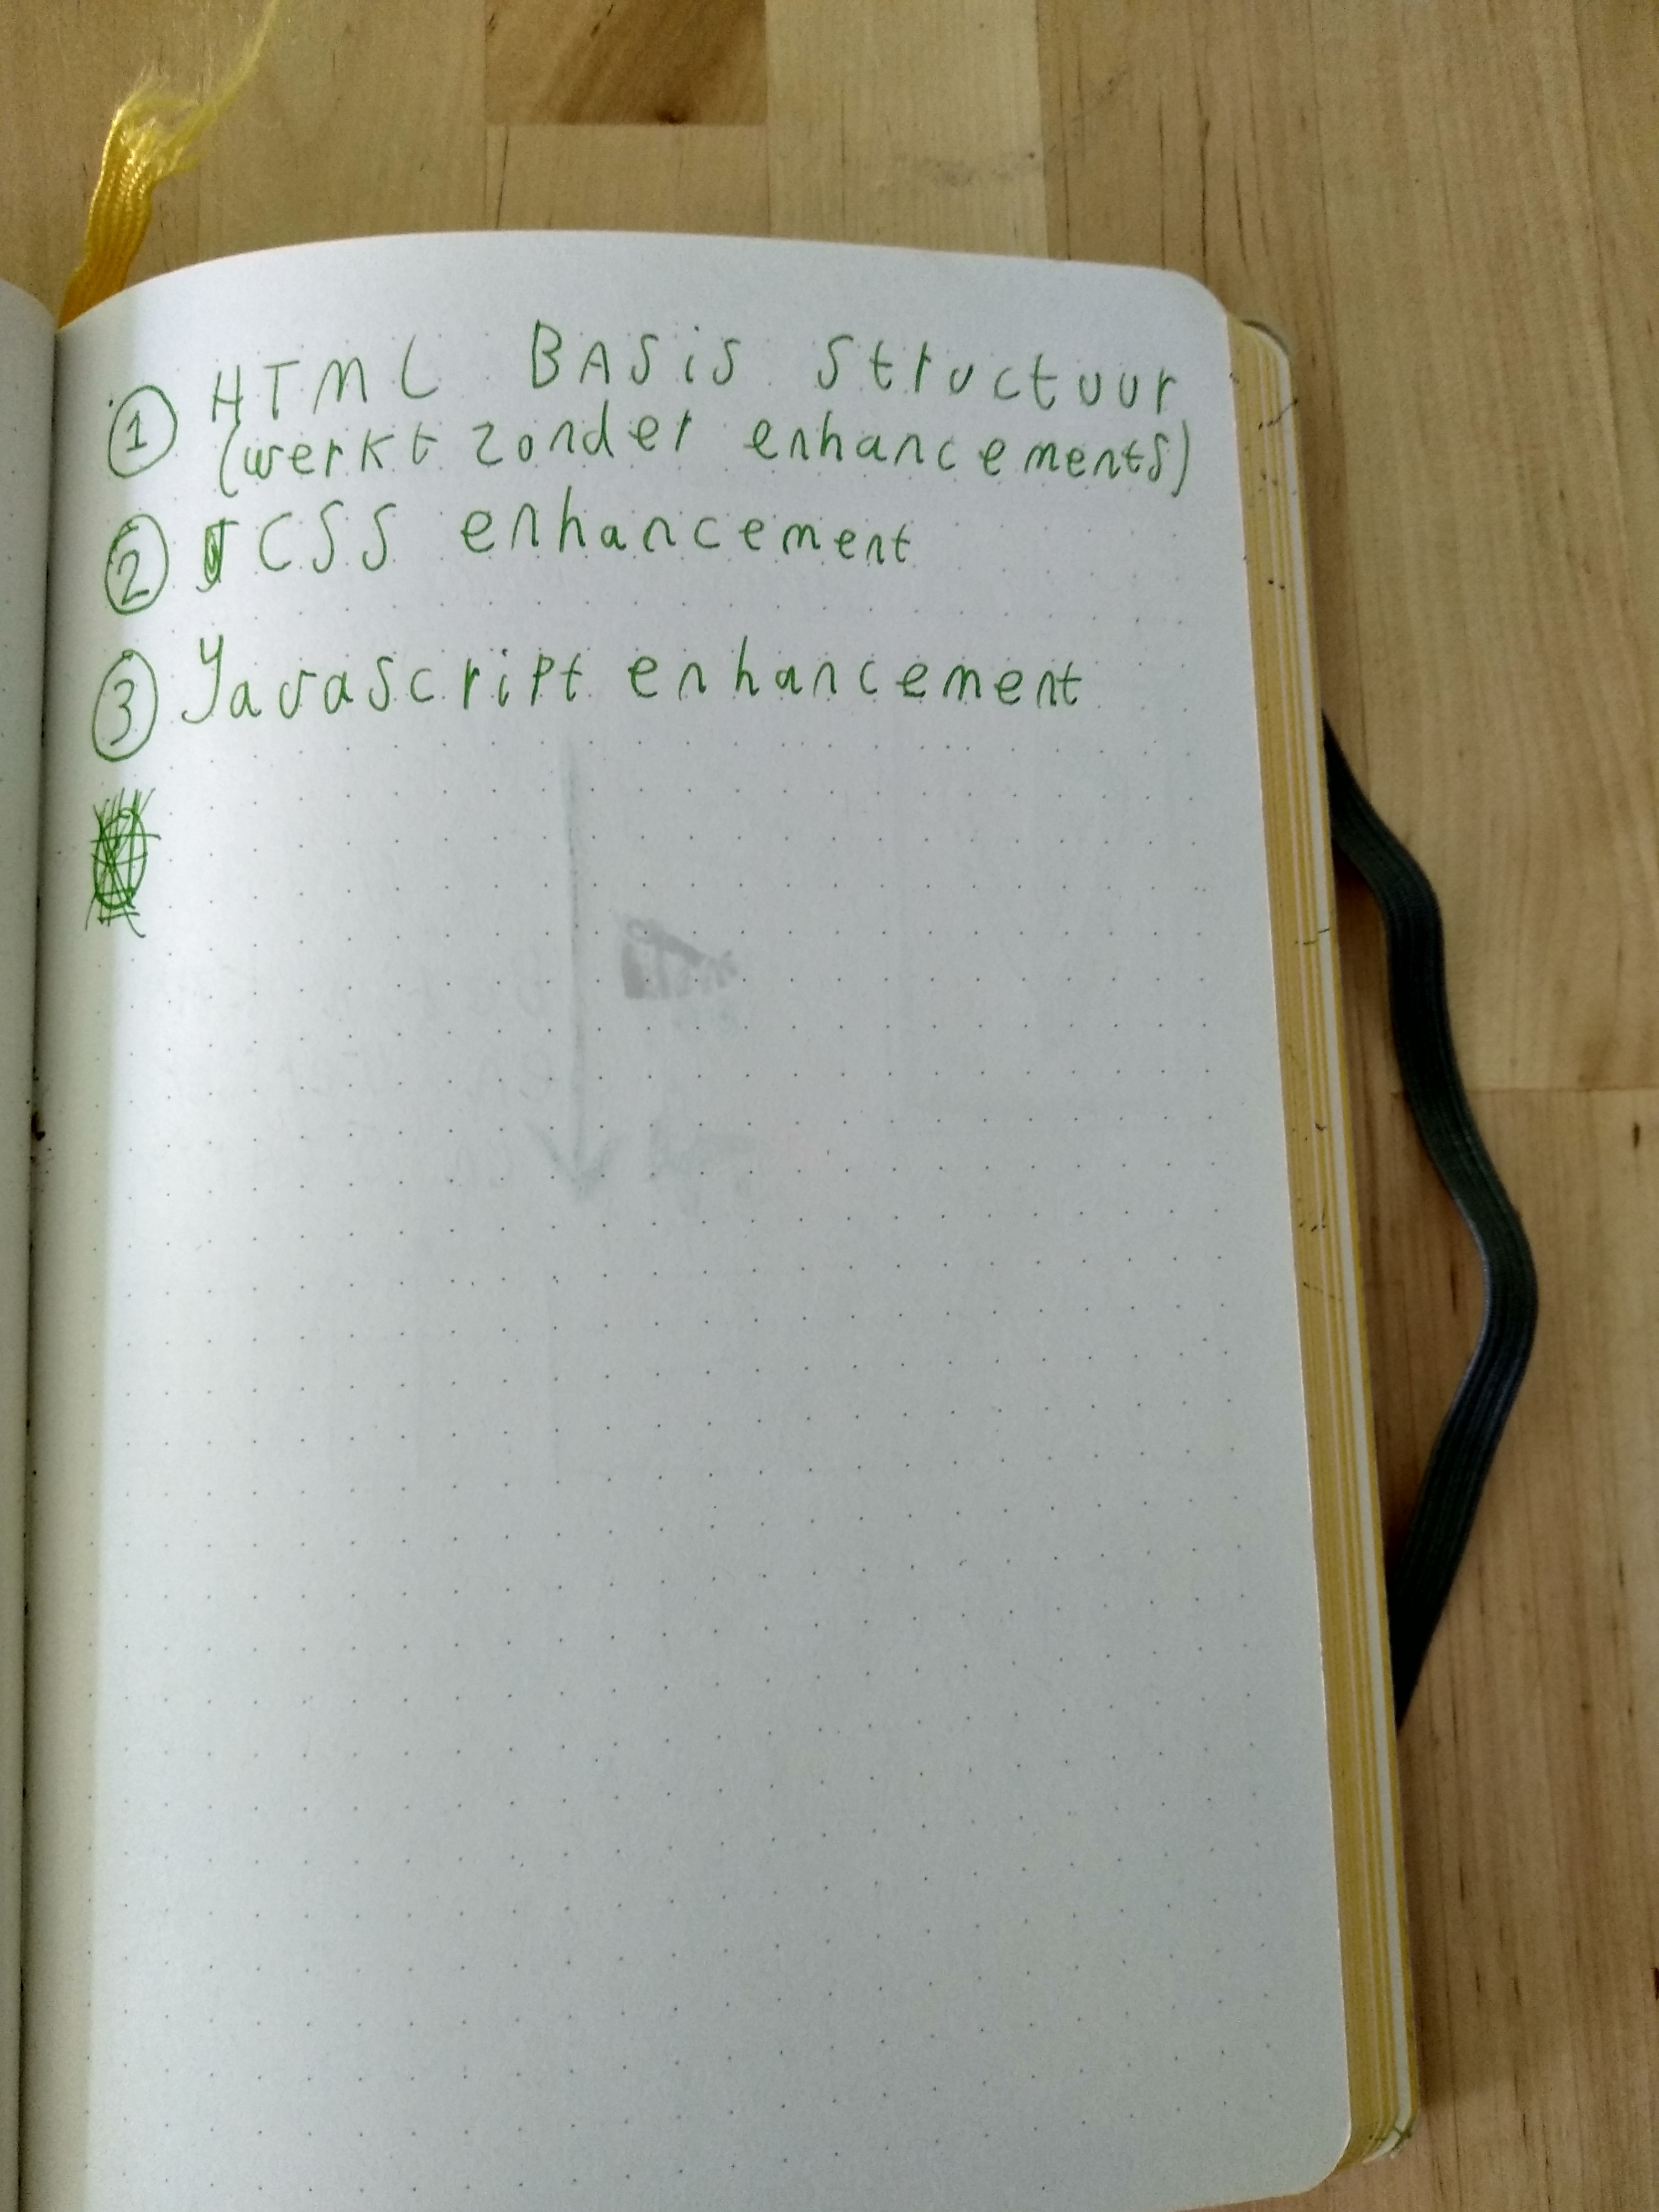 ① HTML BASiS Structuur
(werkt zonder enhancements)
② CSS enhancement
③ Javascript enhancement